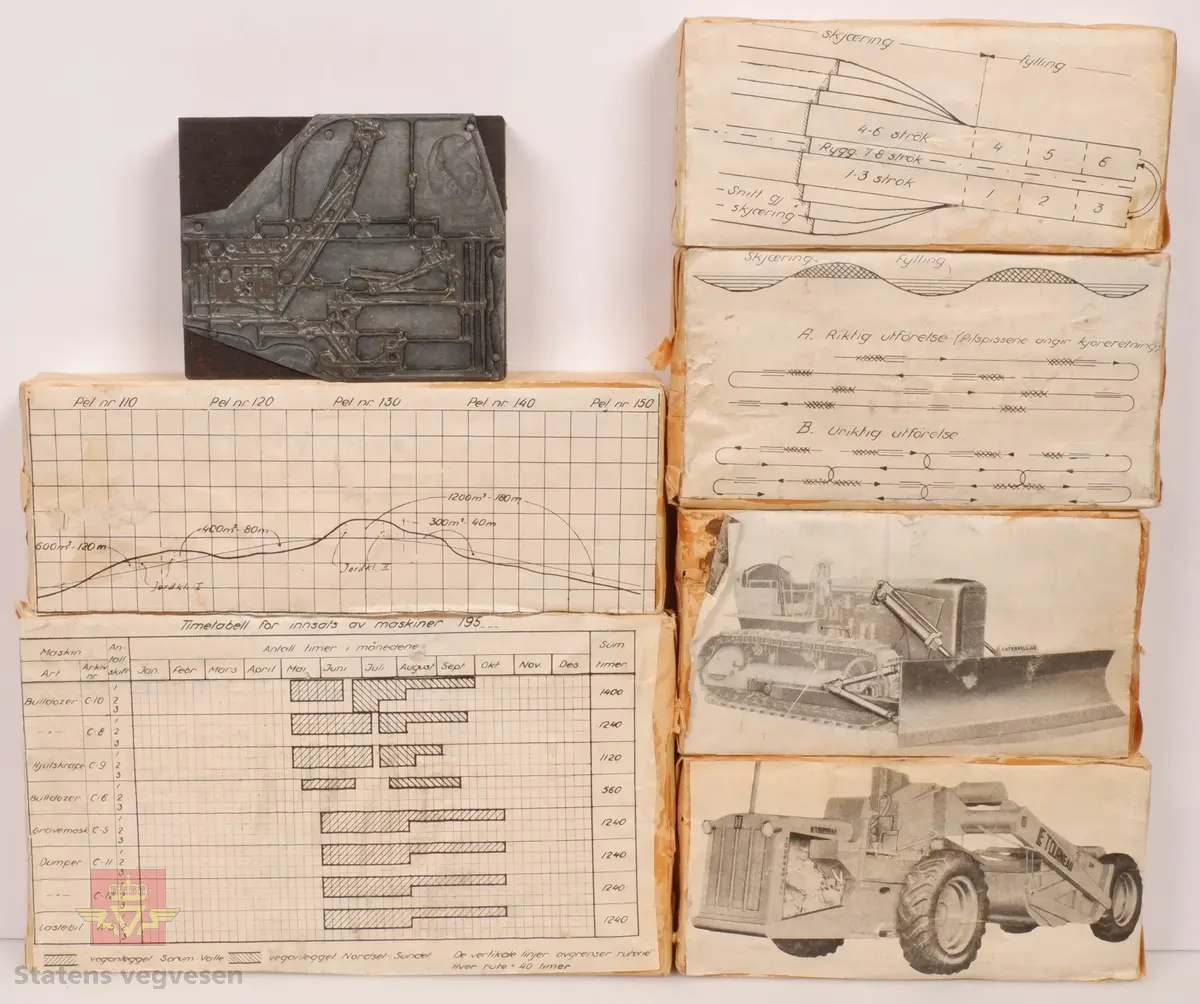 skjæring
fylling
4-6 strök
Rygg 7-8 strök
1-3 strök
4 5 6
1 2 3
Snitt gj
skjæring
Skjæring
Fylling
A. Riktig utförelse (Pilspissene angir kjøreretning)
B. Uriktig utförelse
Pel nr 110 Pel nr 120 Pel nr 130 Pel nr 140 Pel nr 150
1200m³-180m
400m³-80m
300m³-40m
600m³-120m
Jordkl. I
Jordkl. II
Timetabell for innsats av maskiner 195...
Maskin An-tall skift Antall timer i månedene Sum timer
Art Arkiv nr Jan. Febr Mars April Mai Juni Juli August Sept Okt Nov. Des.
Bulldozer C-10 1 2 3 1400
-"- C-8 1 2 3 1240
Hjulskrape C-9 1 2 3 1120
Bulldozer C-6 1 2 3 560
Gravemask C-5 1 2 3 1240
Dumper C-11 1 2 3 1240
-"- 1240
Lastebil 1240
veganlegget Sarum-Valle veganlegget Nordsel-Sundet De vertikale linjer avgrenser rutene
Hver rute = 40 timer
CATERPILLAR
LE TOURNEAU
LE TOURNEAU
Statens vegvesen